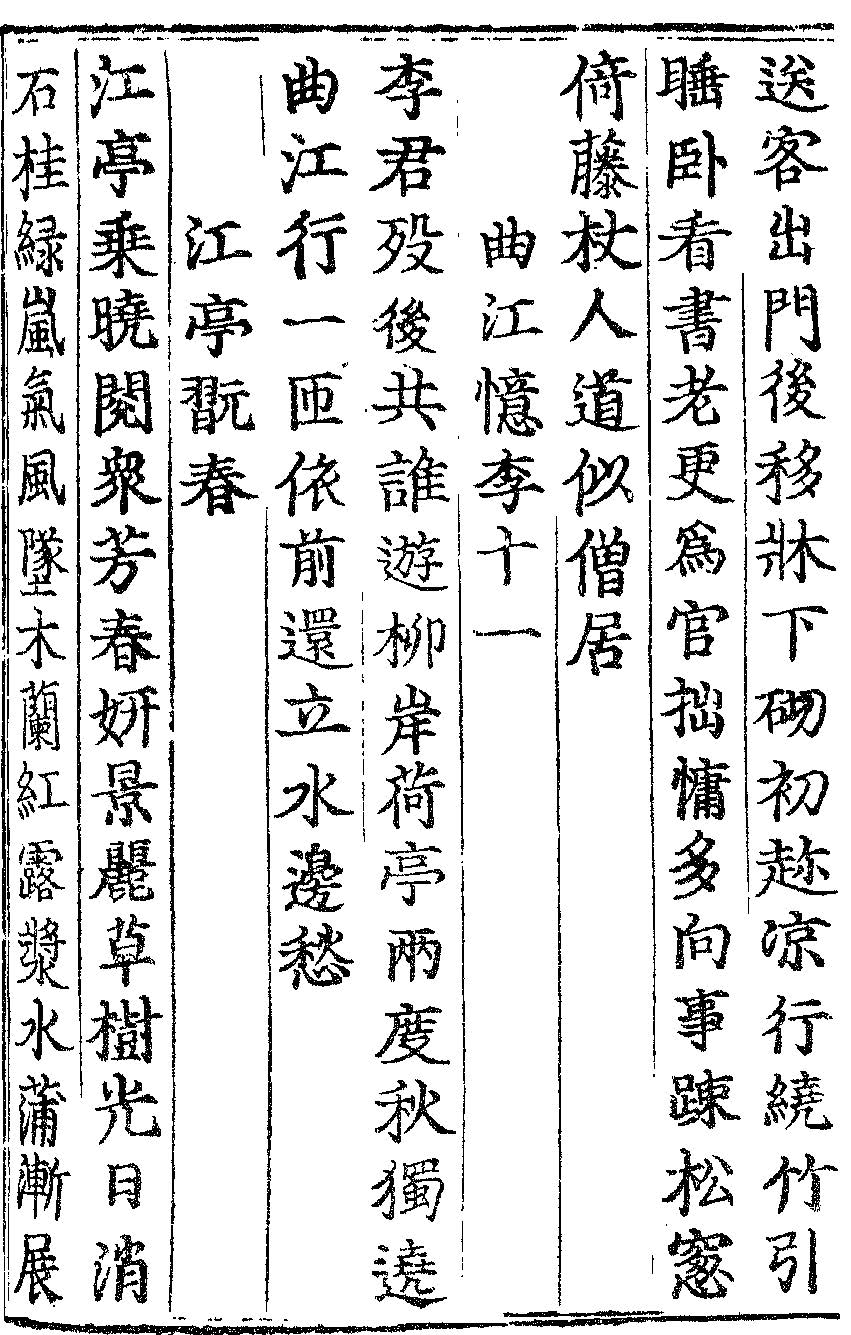 送客出門後移牀下砌初趂凉行繞竹引
睡卧看書老更爲官拙慵多向事踈松窓
倚藤杖人道似僧居
曲江憶李十一
李君歿後共誰遊柳岸荷亭兩度秋獨遶
曲江行一匝依前還立水邊愁
江亭翫春
江亭乗曉閱衆芳春妍景麗草樹光日消
石桂緑嵐氣風墜木蘭紅露漿水蒲漸展